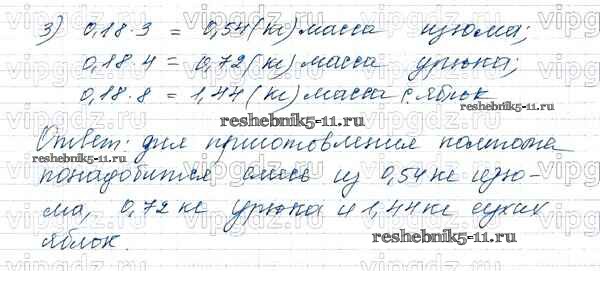 3) 0,18·3 = 0,54 (кг) масса изюма;
0,18·4 = 0,72 (кг) масса урюка;
0,18·8 = 1,44 (кг) масса с. яблок
reshebnik5-11.ru
Ответ: для приготовления компота
reshebnik5-11.ru
понадобится смесь из 0,54 кг изю-
ма, 0,72 кг урюка и 1,44 кг сухих
reshebnik5-11.ru
яблок.
vipgdz.ru